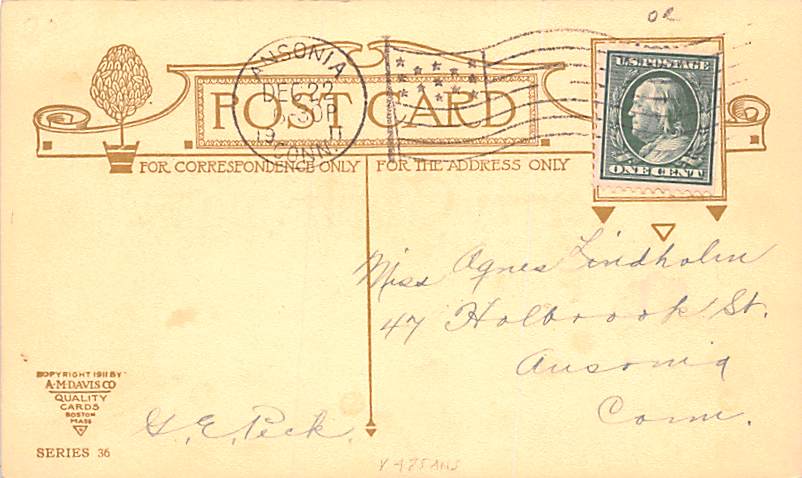 OR
ANSONIA
DEC 22
30P
19 11
CONN.
U.S. POSTAGE
ONE CENT
POST CARD
FOR CORRESPONDENCE ONLY
FOR THE ADDRESS ONLY
Miss Agnes Lindholm
47 Holbrook St.
Ansonia
Conn.
COPYRIGHT 1911 BY
A·M·DAVIS CO
QUALITY
CARDS
BOSTON
MASS
SERIES 36
G. E. Peck.